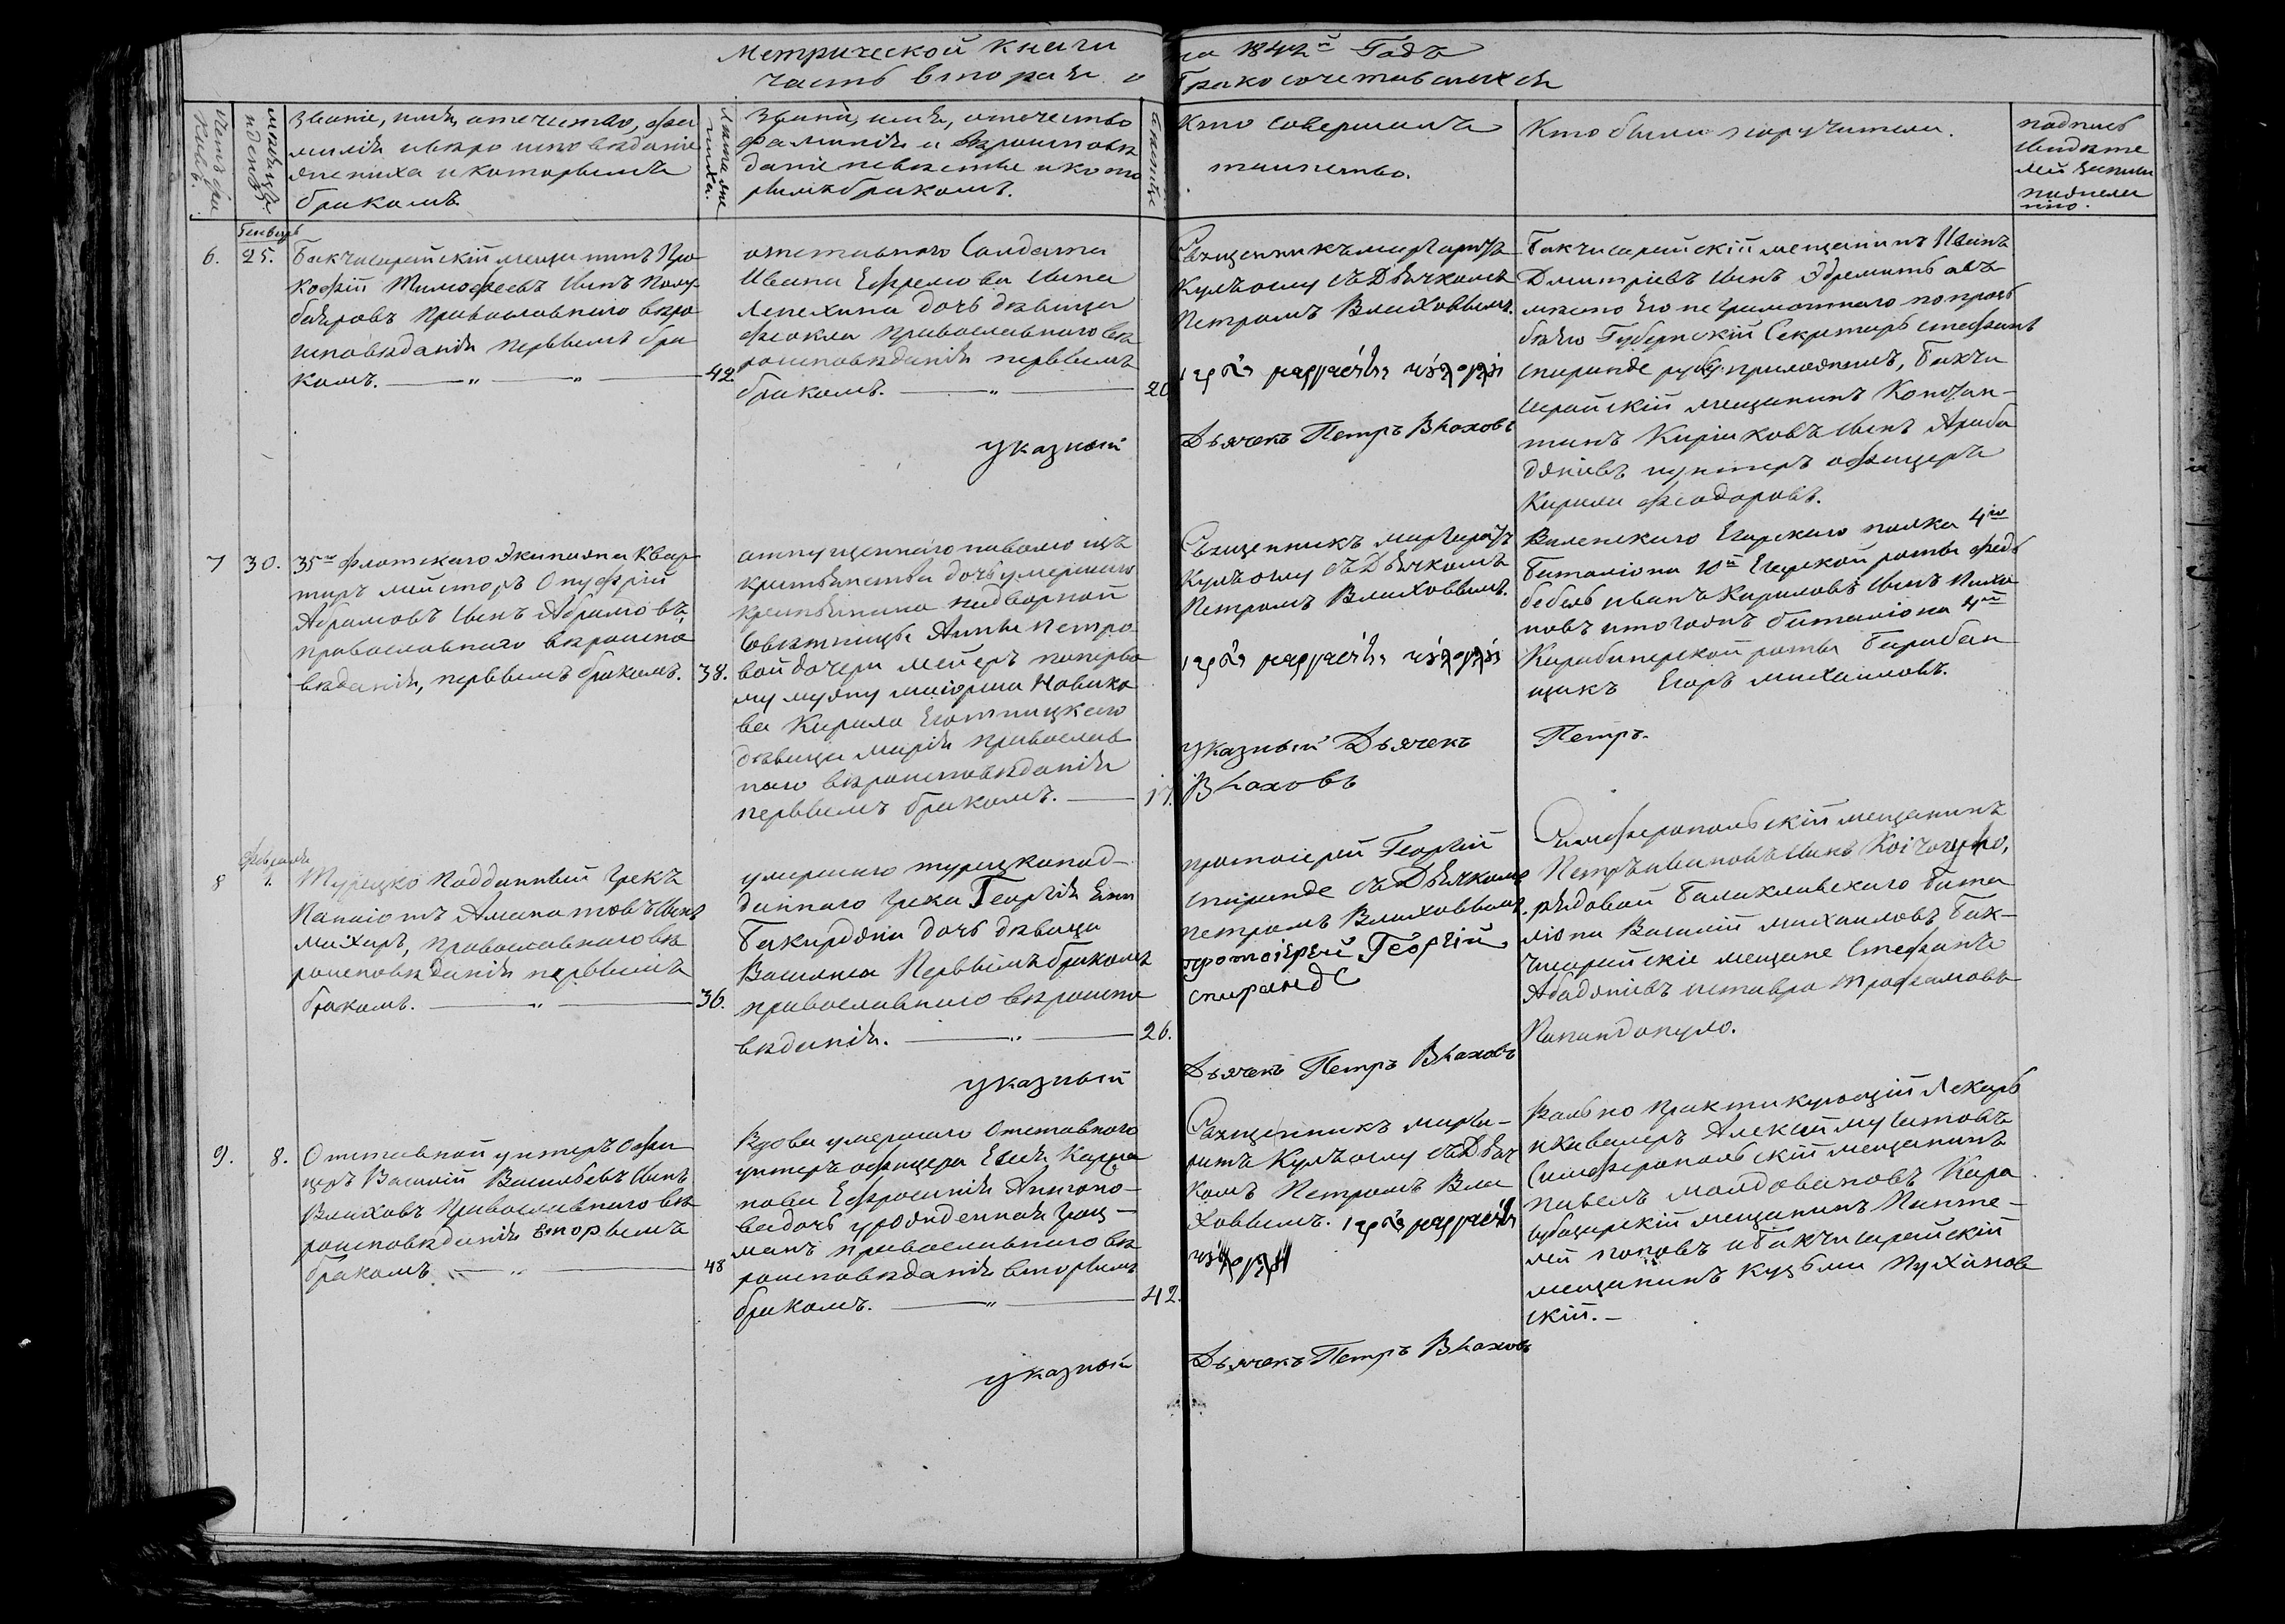 Метрической книги
на 1842й Годъ
часть вторая о
бракосочетавшихся
Счетъ бра
ковъ.
мѣсяцъ
и день.
Званіе, имя, отечество, фа
милія и вѣро исповѣданіе
жениха и которымъ
бракомъ
Лѣта же
ниха.
Званіе, имя, отечество
фамилія и вѣроисповѣ
даніе невѣсты и кото
рымъ бракомъ.
Кто совершалъ
таинство.
Кто были поручители.
подпись
свидѣте
лей записи
по желанію.
Генварь
6.
25.
Бакчисарайскій мещанинъ Про
кофій Тимофеевъ сынъ Полу
бояровъ православнаго вѣро
исповѣданія первымъ бра
комъ.
42.
отставнаго Солдата
Ивана Ефремова сына
Лепехина дочь дѣвица
Фекла православнаго вѣ
роисповѣданія первымъ
бракомъ.
20
указный
Священникъ Маргаритъ
Кулъоглу съ Дьячкомъ
Петромъ Влаховымъ.
Дьячекъ Петръ Влаховъ
Бакчисарайскій мещанинъ Иванъ
Дмитріевъ сынъ Эдремитъ авъ
мѣсто его не грамотнаго по прозь
бѣ его Губернскій Секретарь Стефанъ
Спиранде руку приложилъ, Бакчи
сарайскій мещанинъ Констан-
тинъ Киріаковъ сынъ Араба
джіевъ и унтеръ офицеръ
Кирила Феодоровъ.
7
30.
35го флотскаго Экипажа Квар
тирмейстеръ Онуфрій
Абрамовъ сынъ Абрамовъ,
православнаго вѣроиспо
вѣданія, первымъ бракомъ.
38.
отпущеннаго на волю изъ
крестьянства дочь умершаго
крестьянина надворной
Совѣтницы Анны Петро
вой дочери Мейеръ по перво
му мужу маіорши Новико
ва Кирила Еготницкаго
дѣвица Марія православ
наго вѣроисповѣданія
первымъ бракомъ.
17.
Священникъ Маргаритъ
Кулъоглу съ Дьячкомъ
Петромъ Влаховымъ.
указный Дьячекъ
Петръ.
Влаховъ
Виленскаго Егерскаго полка 4го
баталіона 10й Егерской роты фельд
фебель Иванъ Кириловъ сынъ Пахо
мовъ и того жъ баталіона 4й
Карабинерской роты Барабан
щикъ Егоръ Михайловъ.
Февраля
8
1.
Турецко подданный Грекъ
Панаіотъ Аманатовъ сынъ
Михаръ, православнаго вѣ
роисповѣданія первымъ
бракомъ.
36.
умершаго турецкопод-
даннаго Грека Георгія Ени
Бакирджи дочь дѣвица
Василиса Первымъ бракомъ
православнаго вѣроиспо
вѣданія.
26.
указный
протоіерей Георгій
Спиранде съ Дьячкомъ
Петромъ Влаховымъ.
протоіерей Георгій
Спиранде
Дьячекъ Петръ Влаховъ
Симферопольскій мещанинъ
Петръ Ивановъ сынъ
рядовой Балаклавскаго Бата
ліона Василій Михаиловъ Бак-
чисарайскіе мещане Стефанъ
Абаджіевъ и Ставра Трофамовъ
Папандопуло.
9.
8.
Отставной унтеръ офи
церъ Василій Васильевъ сынъ
Влаховъ православнаго вѣ
роисповѣданія вторымъ
бракомъ
48
Вдова умершаго Отставнаго
унтеръ офицера Евсея
Ефросинія Антоно-
ва дочь урожденная Грац-
манъ православнаго вѣ
роисповѣданія вторымъ
бракомъ.
42.
указный
Священникъ Марга-
ритъ Кулъоглу съ Дьяч
комъ Петромъ Вла
ховымъ.
Дьячекъ Петръ Влаховъ
Вольно практикующій Лекарь
и кавалеръ Алексѣй Муситовъ
Симферопольскій мещанинъ
Павелъ Молдовановъ Кара
субазарскій мещанинъ Панте-
лей Поповъ и Бакчисарайскій
мещанинъ Кузьма
скій.